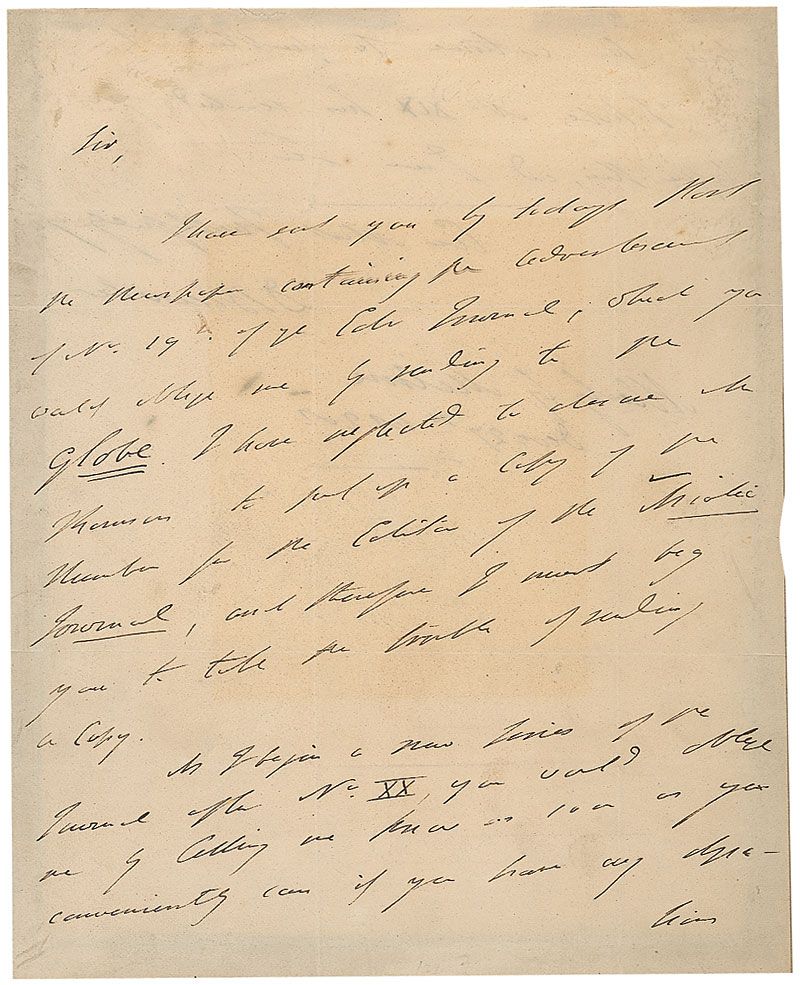 Sir,
I have sent you by todays Post
the Newspaper containing the Advertisement
of No. 19 of ye Edr Journal, which you
would oblige me by sending to the
Globe. I have neglected to desire Mr
to put up a Copy of the
Number for the Editor of the Asiatic
Journal, and therefore I must beg
you to take the trouble of sending
a Copy.
As I begin a new Series of the
Journal after No. XX, you would oblige
me by letting me know as soon as you
conveniently can if you have any